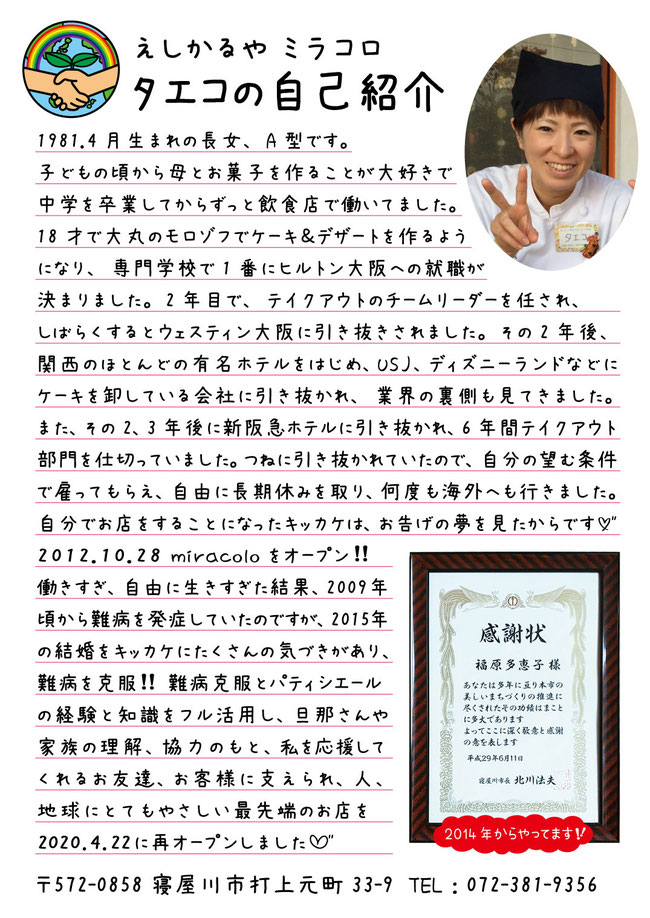 えしかるや ミラコロ
タエコの自己紹介
1981.4月生まれの長女、A型です。
子どもの頃から母とお菓子を作ることが大好きで
中学を卒業してからずっと飲食店で働いてました。
18才で大丸のモロゾフでケーキ&デザートを作るよう
になり、専門学校で1番にヒルトン大阪への就職が
決まりました。2年目で、テイクアウトのチームリーダーを任され、
しばらくするとウェスティン大阪に引き抜きされました。その2年後、
関西のほとんどの有名ホテルをはじめ、USJ、ディズニーランドなどに
ケーキを卸している会社に引き抜かれ、業界の裏側も見てきました。
また、その2、3年後に新阪急ホテルに引き抜かれ、6年間テイクアウト
部門を仕切っていました。つねに引き抜かれていたので、自分の望む条件
で雇ってもらえ、自由に長期休みを取り、何度も海外へも行きました。
自分でお店をすることになったキッカケは、お告げの夢を見たからです♡"
2012.10.28 miracoloをオープン!!
働きすぎ、自由に生きすぎた結果、2009年
頃から難病を発症していたのですが、2015年
の結婚をキッカケにたくさんの気づきがあり、
難病を克服!! 難病克服とパティシエール
の経験と知識をフル活用し、旦那さんや
家族の理解、協力のもと、私を応援して
くれるお友達、お客様に支えられ、人、
地球にとてもやさしい最先端のお店を
2020.4.22に再オープンしました♡"
タエコ
感謝状
福原多恵子様
あなたは多年に亘り本市の
美しいまちづくりの推進に
尽くされたその功績はまこと
に多大であります
よってここに深く敬意と感謝
の意を表します
平成29年6月11日
寝屋川市長 北川法夫
2014年からやってます!!
〒572-0858 寝屋川市打上元町33-9 TEL:072-381-9356